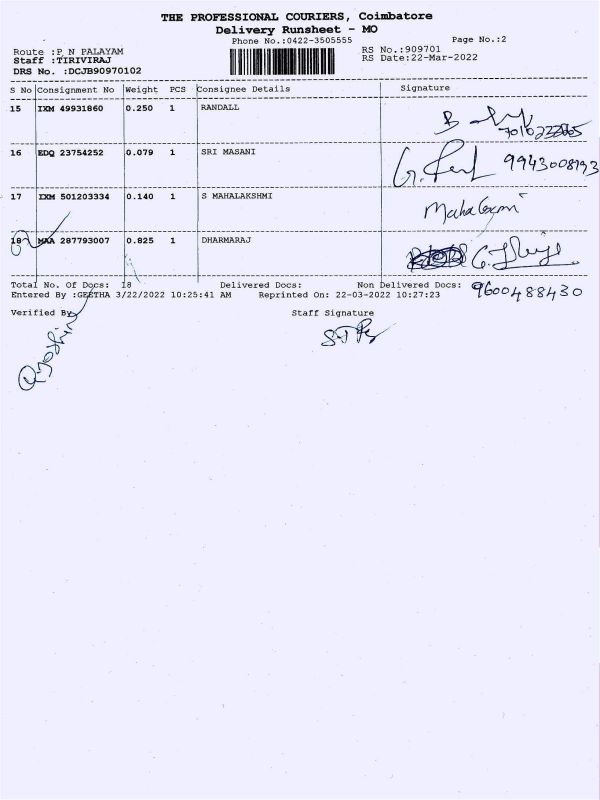 THE PROFESSIONAL COURIERS, Coimbatore
Delivery Runsheet - MO
Phone No.:0422-3505555 Page No.:2
Route :P N PALAYAM RS No.:909701
Staff :TIRIVIRAJ RS Date:22-Mar-2022
DRS No. :DCJB90970102
S No Consignment No Weight PCS Consignee Details Signature
15 IXM 49931860 0.250 1 RANDALL
16 EDQ 23754252 0.079 1 SRI MASANI 9943008193
17 IXM 501203334 0.140 1 S MAHALAKSHMI
18 MAA 287793007 0.825 1 DHARMARAJ
Total No. Of Docs: 18 Delivered Docs: Non Delivered Docs: 9600488430
Entered By :GEETHA 3/22/2022 10:25:41 AM Reprinted On: 22-03-2022 10:27:23
Verified By Staff Signature